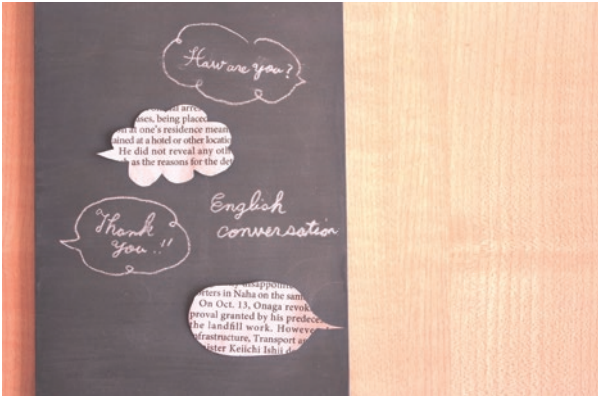 How are you?
arre
uses, being placed
at one's residence mean
ained at a hotel or other locatio
He did not reveal any oth
as the reasons for the det
English
conversation
Thank
you!!
disappoint
rters in Naha on the sam
On Oct. 13, Onaga revok
proval granted by his predece
the landfill work. Howeve
nfrastructure, Transport a
nister Keiichi Ishii d